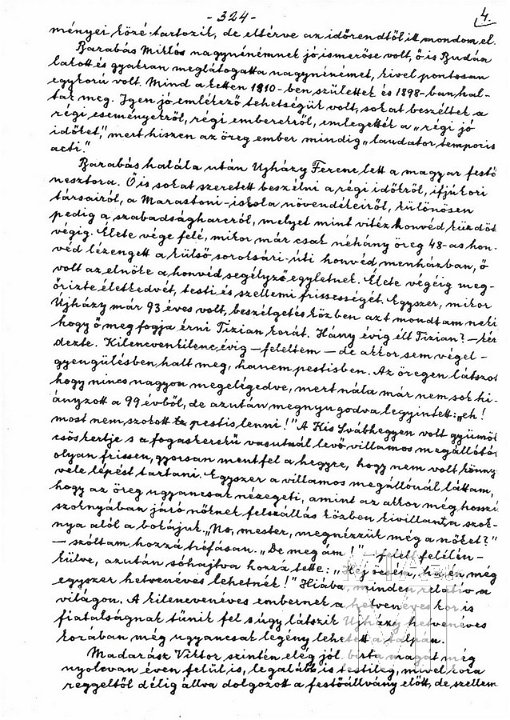 -324-
4.
ményei közé tartozik, de eltérve az időrendtől itt mondom el.
Barabás Miklós nagynénémnek jó ismerőse volt, ő is Budán
lakott és gyakran meglátogatta nagynénémet, kivel pontosan
egykorú volt. Mind a ketten 1810-ben születtek és 1898-ban hal-
tak meg. Igen jó emlékező tehetségük volt, sokat beszéltek a
régi eseményekről, régi emberekről, emlegették a „régi jó
időket," mert hiszen az öreg ember mindig „laudator temporis
acti."
Barabás halála után Ujházy Ferenc lett a magyar festő
nesztora. Ő is sokat szeretett beszélni a régi időkről, ifjúkori
társairól, a Marastoni-iskola növendékeiről, különösen
pedig a szabadságharcról, melyet mint vitéz honvéd küzdött
végig. Élete vége felé, mikor már csak néhány öreg 48-as hon-
véd lézengett a külső soroksári-úti honvéd menházban, ő
volt az elnöke a honvéd segélyző egyletnek. Élete végéig meg-
őrizte életkedvét, testi és szellemi frissességét. Egyszer, mikor
Ujházy már 93 éves volt, beszélgetés közben azt mondtam neki
hogy ő meg fogja érni Tizian korát. Hány évig élt Tizian? – kér
dezte. Kilencvenkilenc évig – feleltem – de akkor sem végel-
gyengülésben halt meg, hanem pestisben. Az öregen látszot
hogy nincs nagyon megelégedve, mert nála már nem sok hi-
ányzott a 99 évből, de azután megnyugodva legyintett: „eh!
most nem szokott pestis lenni!" A Kis Svábhegyen volt gyümöl
csöskertje s a fogaskerekű vasutnál levő villamos megállótól
olyan frissen, gyorsan ment fel a hegyre, hogy nem volt könny
vele lépést tartani. Egyszer a villamos megállónál láttam,
hogy az öreg ugyancsak nézegeti, amint az akkor még hosszú
szoknyában járó nőknek felszállás közben kivillant a szok-
nya alól a bokájuk. „No, mester, megnézzük még a nőket?"
– szóltam hozzá tréfásan. „De meg ám!" – felelt felélén-
külve, azután sóhajtva hozzá tette: „Hej öcsém, ha én még
egyszer hetvenéves lehetnék!" Hiába, minden relatív a
világon. A kilencvenéves embernek a hetvenéves kor is
fiatalságnak tűnik fel s úgy látszik Ujházy hetvenéves
korában még ugyancsak legény lehetett a talpán.
Madarász Viktor szintén elég jól bírta magát még
nyolcvan éven felül is, legalább is testileg, mivel kora
reggeltől délig állva dolgozott a festőállvány előtt, de szellem